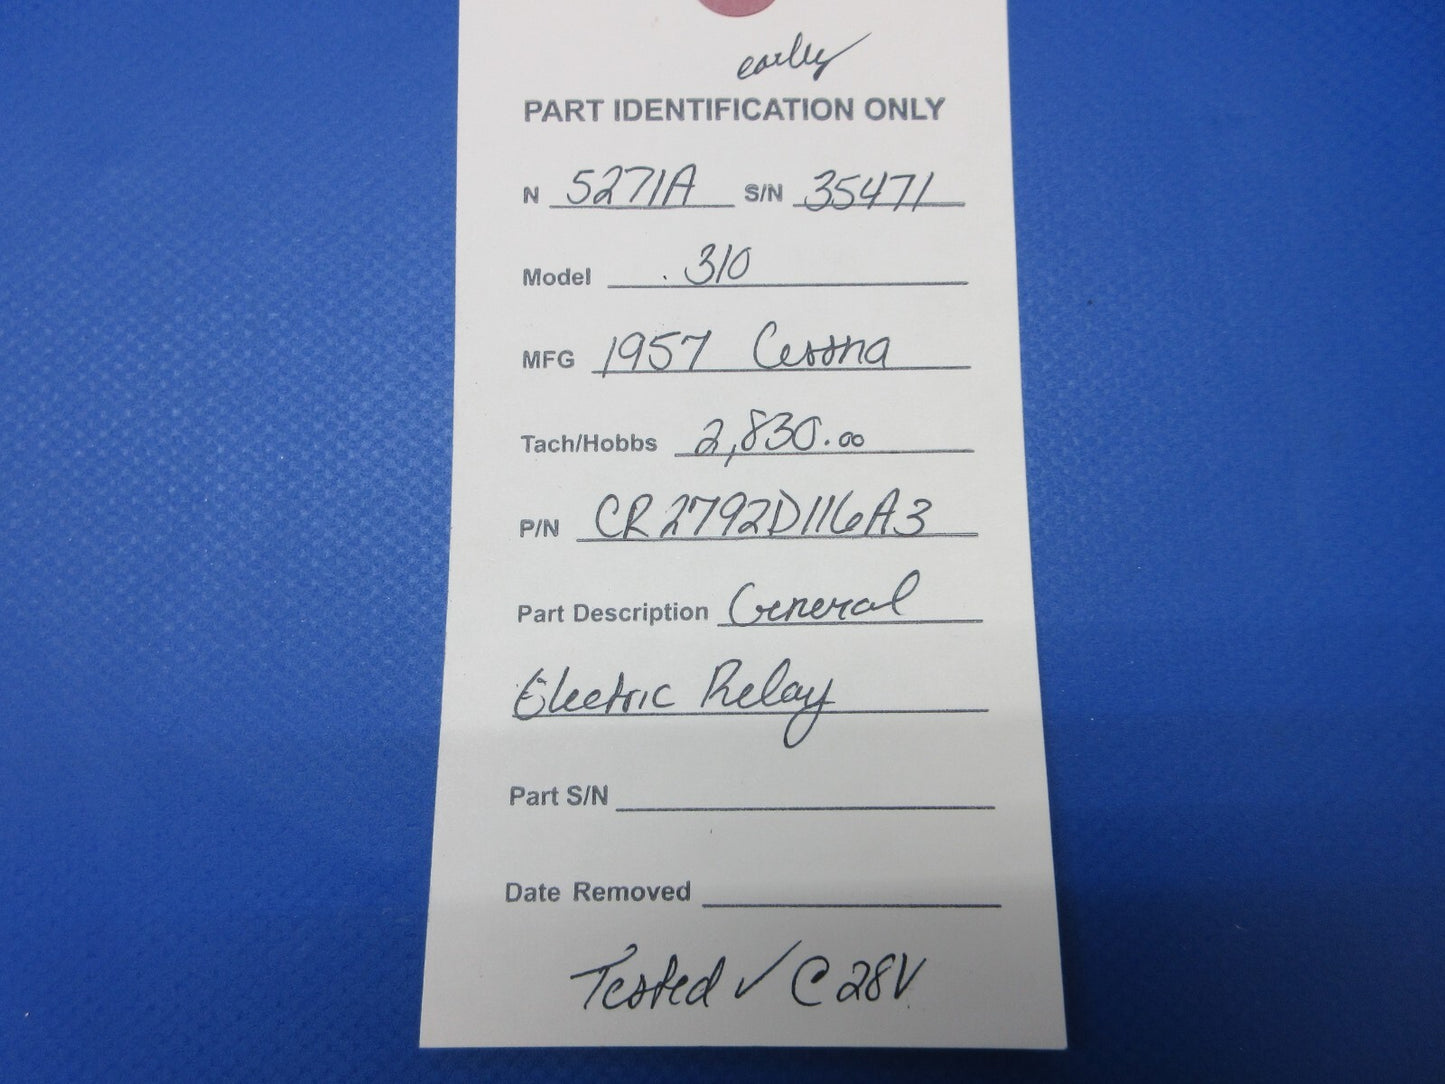 early
PART IDENTIFICATION ONLY
N 5271A S/N 35471
Model . 310
MFG 1957 Cessna
Tach/Hobbs 2,830.00
P/N CR2792D116A3
Part Description General
Electric Relay
Part S/N
Date Removed
Tested ✓ @ 28V